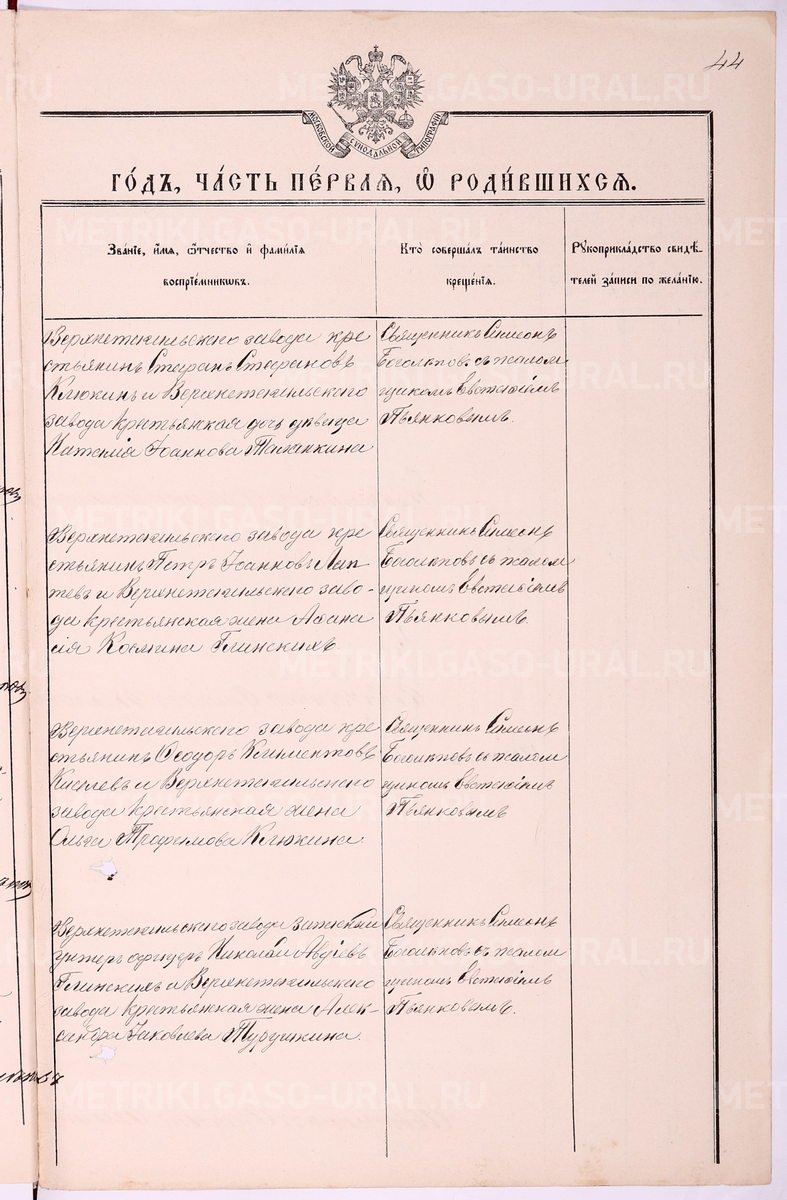 44
МОСКОВСКОЙ СѴНОДАЛЬНОЙ ТИПОГРАФІИ
ГО́ДЪ, ЧА́СТЬ ПЕ́РВАЯ, Ѡ҆ РОДИ́ВШИХСЯ.
Зва́нїе, и҆́мя, ѻ҆́тчество и҆ фами́лїя
воспрїе́мниковъ.
Кто̀ соверша́лъ та́инство
креще́нїя.
Рꙋкоприкла́дство свидѣ́-
телей за́писи по жела́нїю.
Верхнетагильскаго завода кре
стьянинъ Стефанъ Стефановъ
Клюкинъ и Верхнетагильскаго
завода крестьянская дочь девица
Іоаннова
Священникъ Симеонъ
Боголѣповъ съ псалом
щикомъ Евгеніемъ
Пьянковымъ.
Верхнетагильскаго завода кре
стьянинъ Петръ Іоанновъ Лап
тевъ и Верхнетагильскаго заво-
да крестьянская жена Афана
сія Космина Глинскихъ.
Священникъ Симеонъ
Боголѣповъ съ псалом
щикомъ Евгеніемъ
Пьянковымъ.
Верхнетагильскаго завода кре
стьянинъ Ѳеодоръ Климентовъ
Киселевъ и Верхнетагильскаго
завода крестьянская жена
Ольга Трофимова Клюкина
Священникъ Симеонъ
Боголѣповъ съ псалом
щикомъ Евгеніемъ
Пьянковымъ
Верхнетагильскаго завода запасный
унтеръ офицеръ Николай Авдіевъ
Глинскихъ и Верхнетагильскаго
завода крестьянская жена Алек-
сандра Іаковлева Турушкина.
Священникъ Симеонъ
Боголѣповъ съ псалом
щикомъ Евгеніемъ
Пьянковымъ.
METRIKI.GASO-URAL.RU